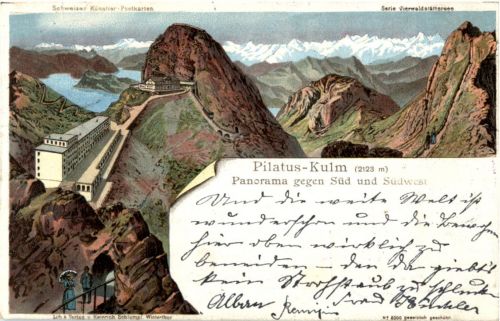 Schweizer Künstler-Postkarten.
Serie Vierwaldstättersee
Pilatus-Kulm (2123 m)
Panorama gegen Süd und Südwest
Und die weite Welt ist
wunderschön und die Bewohner
hier oben wirklich zu
beneiden - den da giebts
kein Strohstaub zu schlucken
Alban
Lith. & Verlag v. Heinrich Schlumpf, Winterthur
Nº 8200 gesetzlich geschützt.